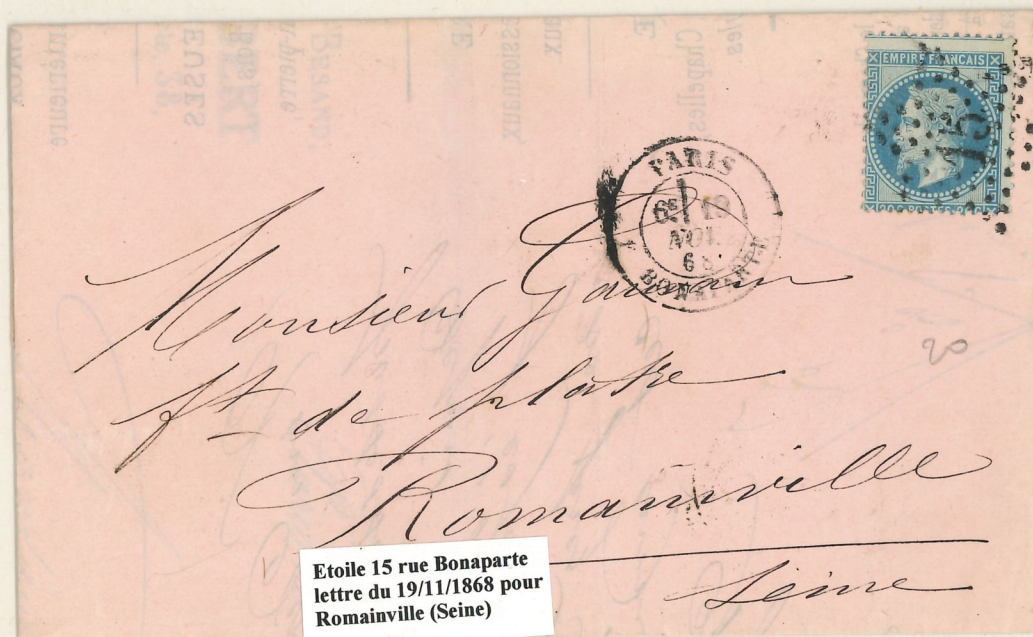 EMPIRE FRANÇAIS
15
PARIS
6E 19
NOV.
68
BONAPARTE
Monsieur
ft de plâtre
Romainville
Seine
20
Etoile 15 rue Bonaparte
lettre du 19/11/1868 pour
Romainville (Seine)